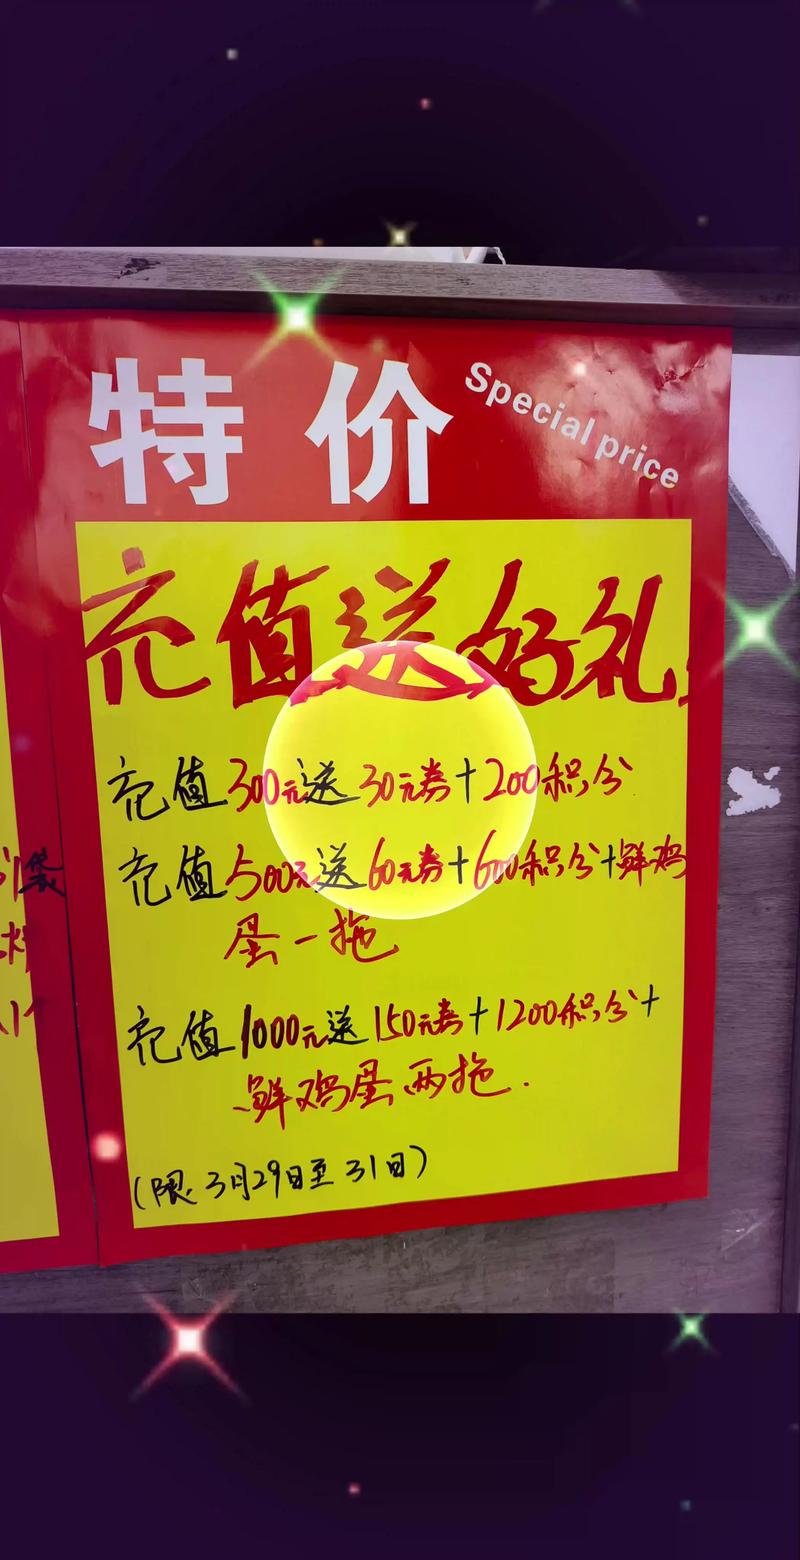 特价
Special price
充值送好礼
充值300元送30元券+200积分
充值500元送60元券+600积分+鲜鸡
蛋一拖
充值1000元送150元券+1200积分+
鲜鸡蛋两拖.
(限3月29日至31日)
袋